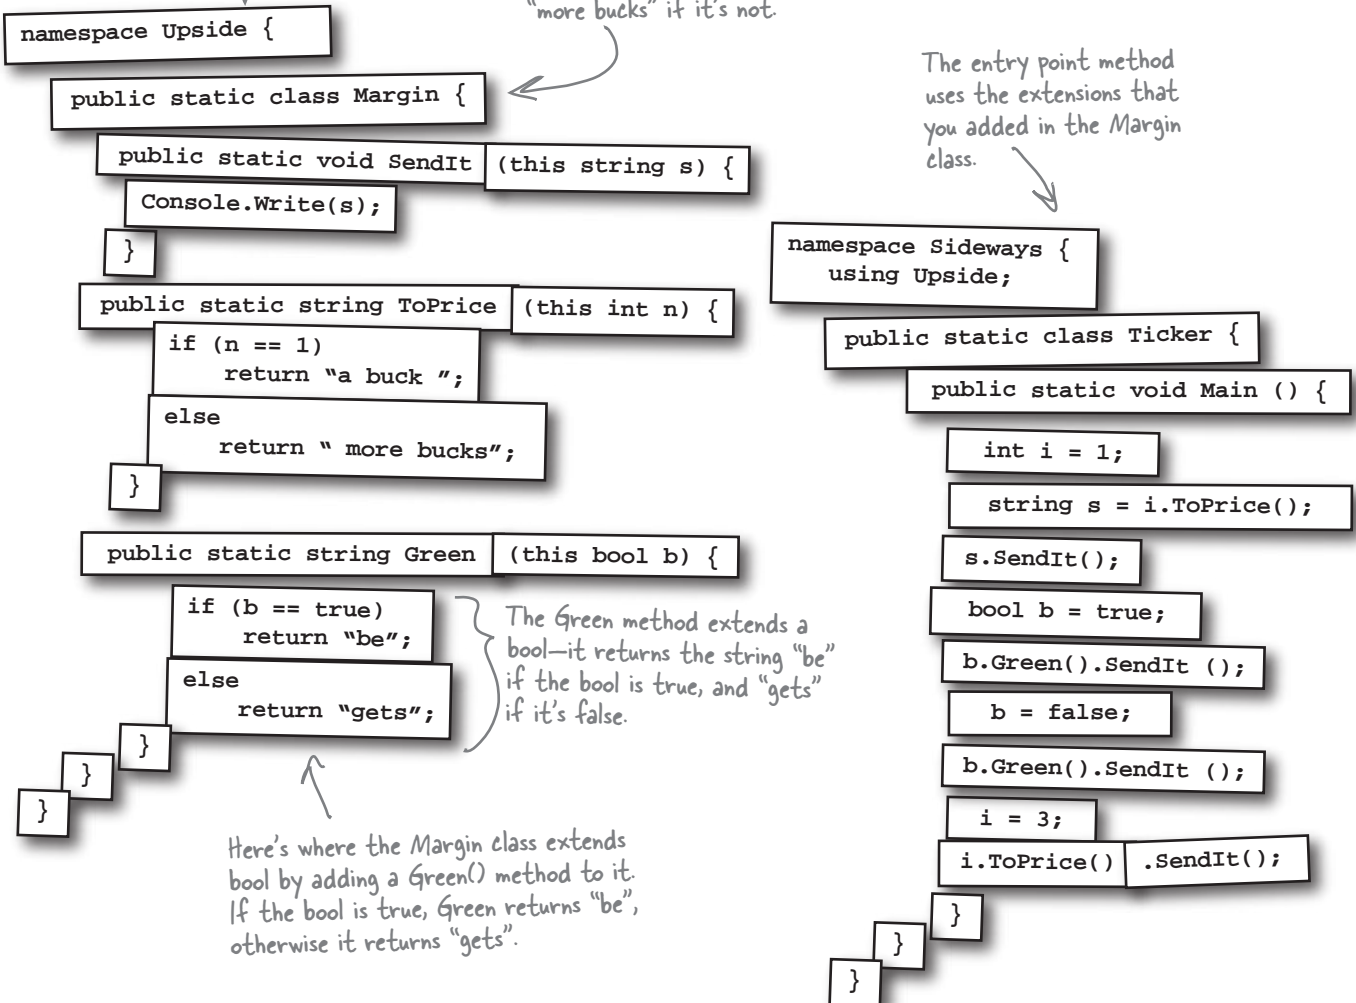 "more bucks" if it's not.
namespace Upside {
public static class Margin {
public static void SendIt (this string s) {
Console.Write(s);
}
public static string ToPrice (this int n) {
if (n == 1)
return “a buck ”;
else
return “ more bucks”;
}
public static string Green (this bool b) {
if (b == true)
return “be”;
else
return “gets”;
}
}
}
The Green method extends a
bool—it returns the string "be"
if the bool is true, and "gets"
if it's false.
Here's where the Margin class extends
bool by adding a Green() method to it.
If the bool is true, Green returns "be",
otherwise it returns "gets".
The entry point method
uses the extensions that
you added in the Margin
class.
namespace Sideways {
using Upside;
public static class Ticker {
public static void Main () {
int i = 1;
string s = i.ToPrice();
s.SendIt();
bool b = true;
b.Green().SendIt ();
b = false;
b.Green().SendIt ();
i = 3;
i.ToPrice() .SendIt();
}
}
}